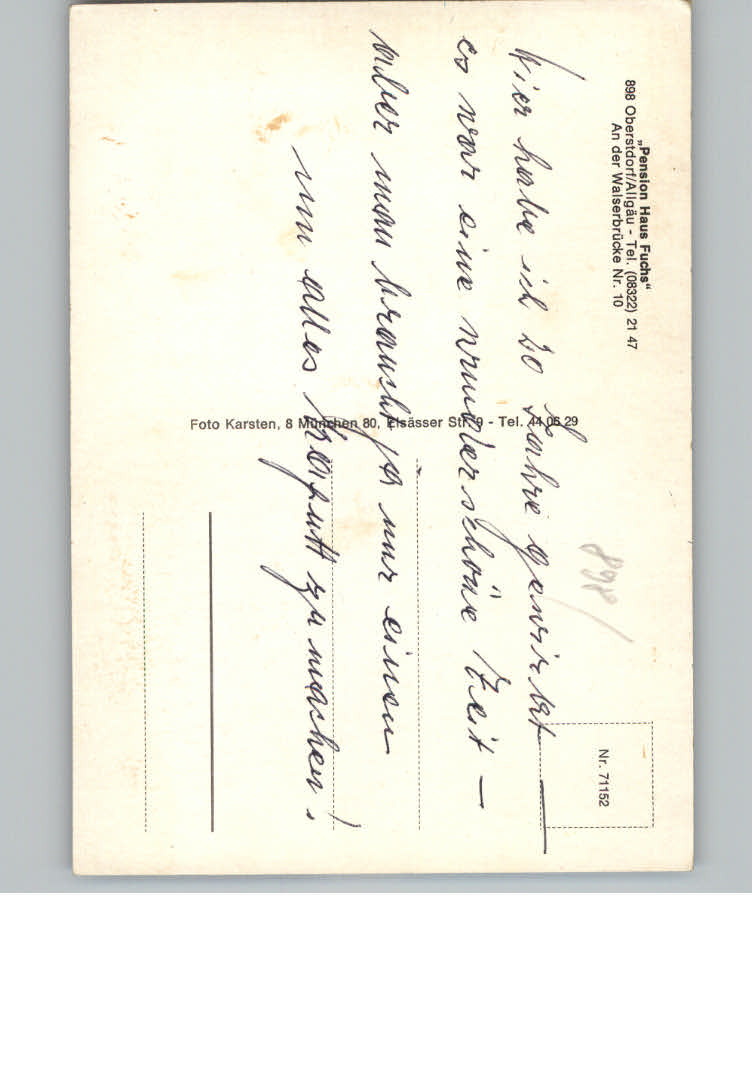 „Pension Haus Fuchs“
898 Oberstdorf/Allgäu - Tel. (08322) 21 47
An der Walserbrücke Nr. 10
Hier habe ich 20 Jahre gewirkt —
es war eine wunderschöne Zeit —
aber man braucht ja nur einen
um alles kaputt zu machen!
Foto Karsten, 8 München 80, Elsässer Str. 9 - Tel. 44 06 29
898
Nr. 71152